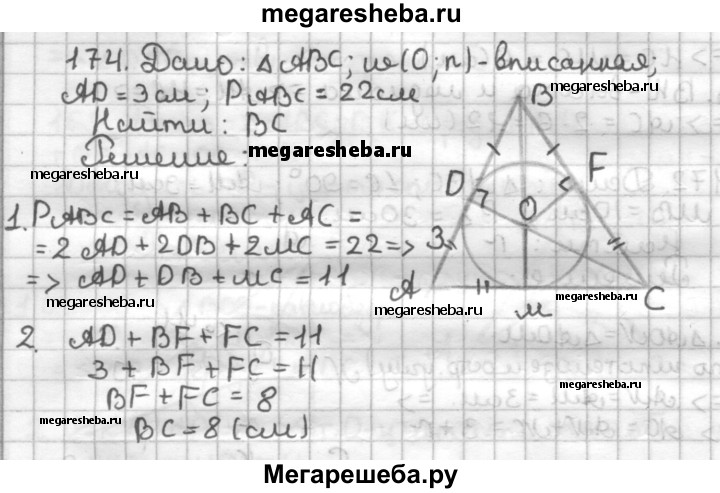 megaresheba.ru
174. Дано: △ABC; ω(O; r) - вписанная;
AD = 3 см; P△ABC = 22 см
megaresheba.ru
Найти: BC
Решение:
megaresheba.ru
megaresheba.ru
B
D
F
O
3
A
M
C
1. P△ABC = AB + BC + AC =
= 2 AD + 2DB + 2MC = 22 =>
=> AD + DB + MC = 11
megaresheba.ru
megaresheba.ru
megaresheba.ru
2. AD + BF + FC = 11
3 + BF + FC = 11
BF + FC = 8
BC = 8 (см)
megaresheba.ru
megaresheba.ru
Мегарешеба.ру